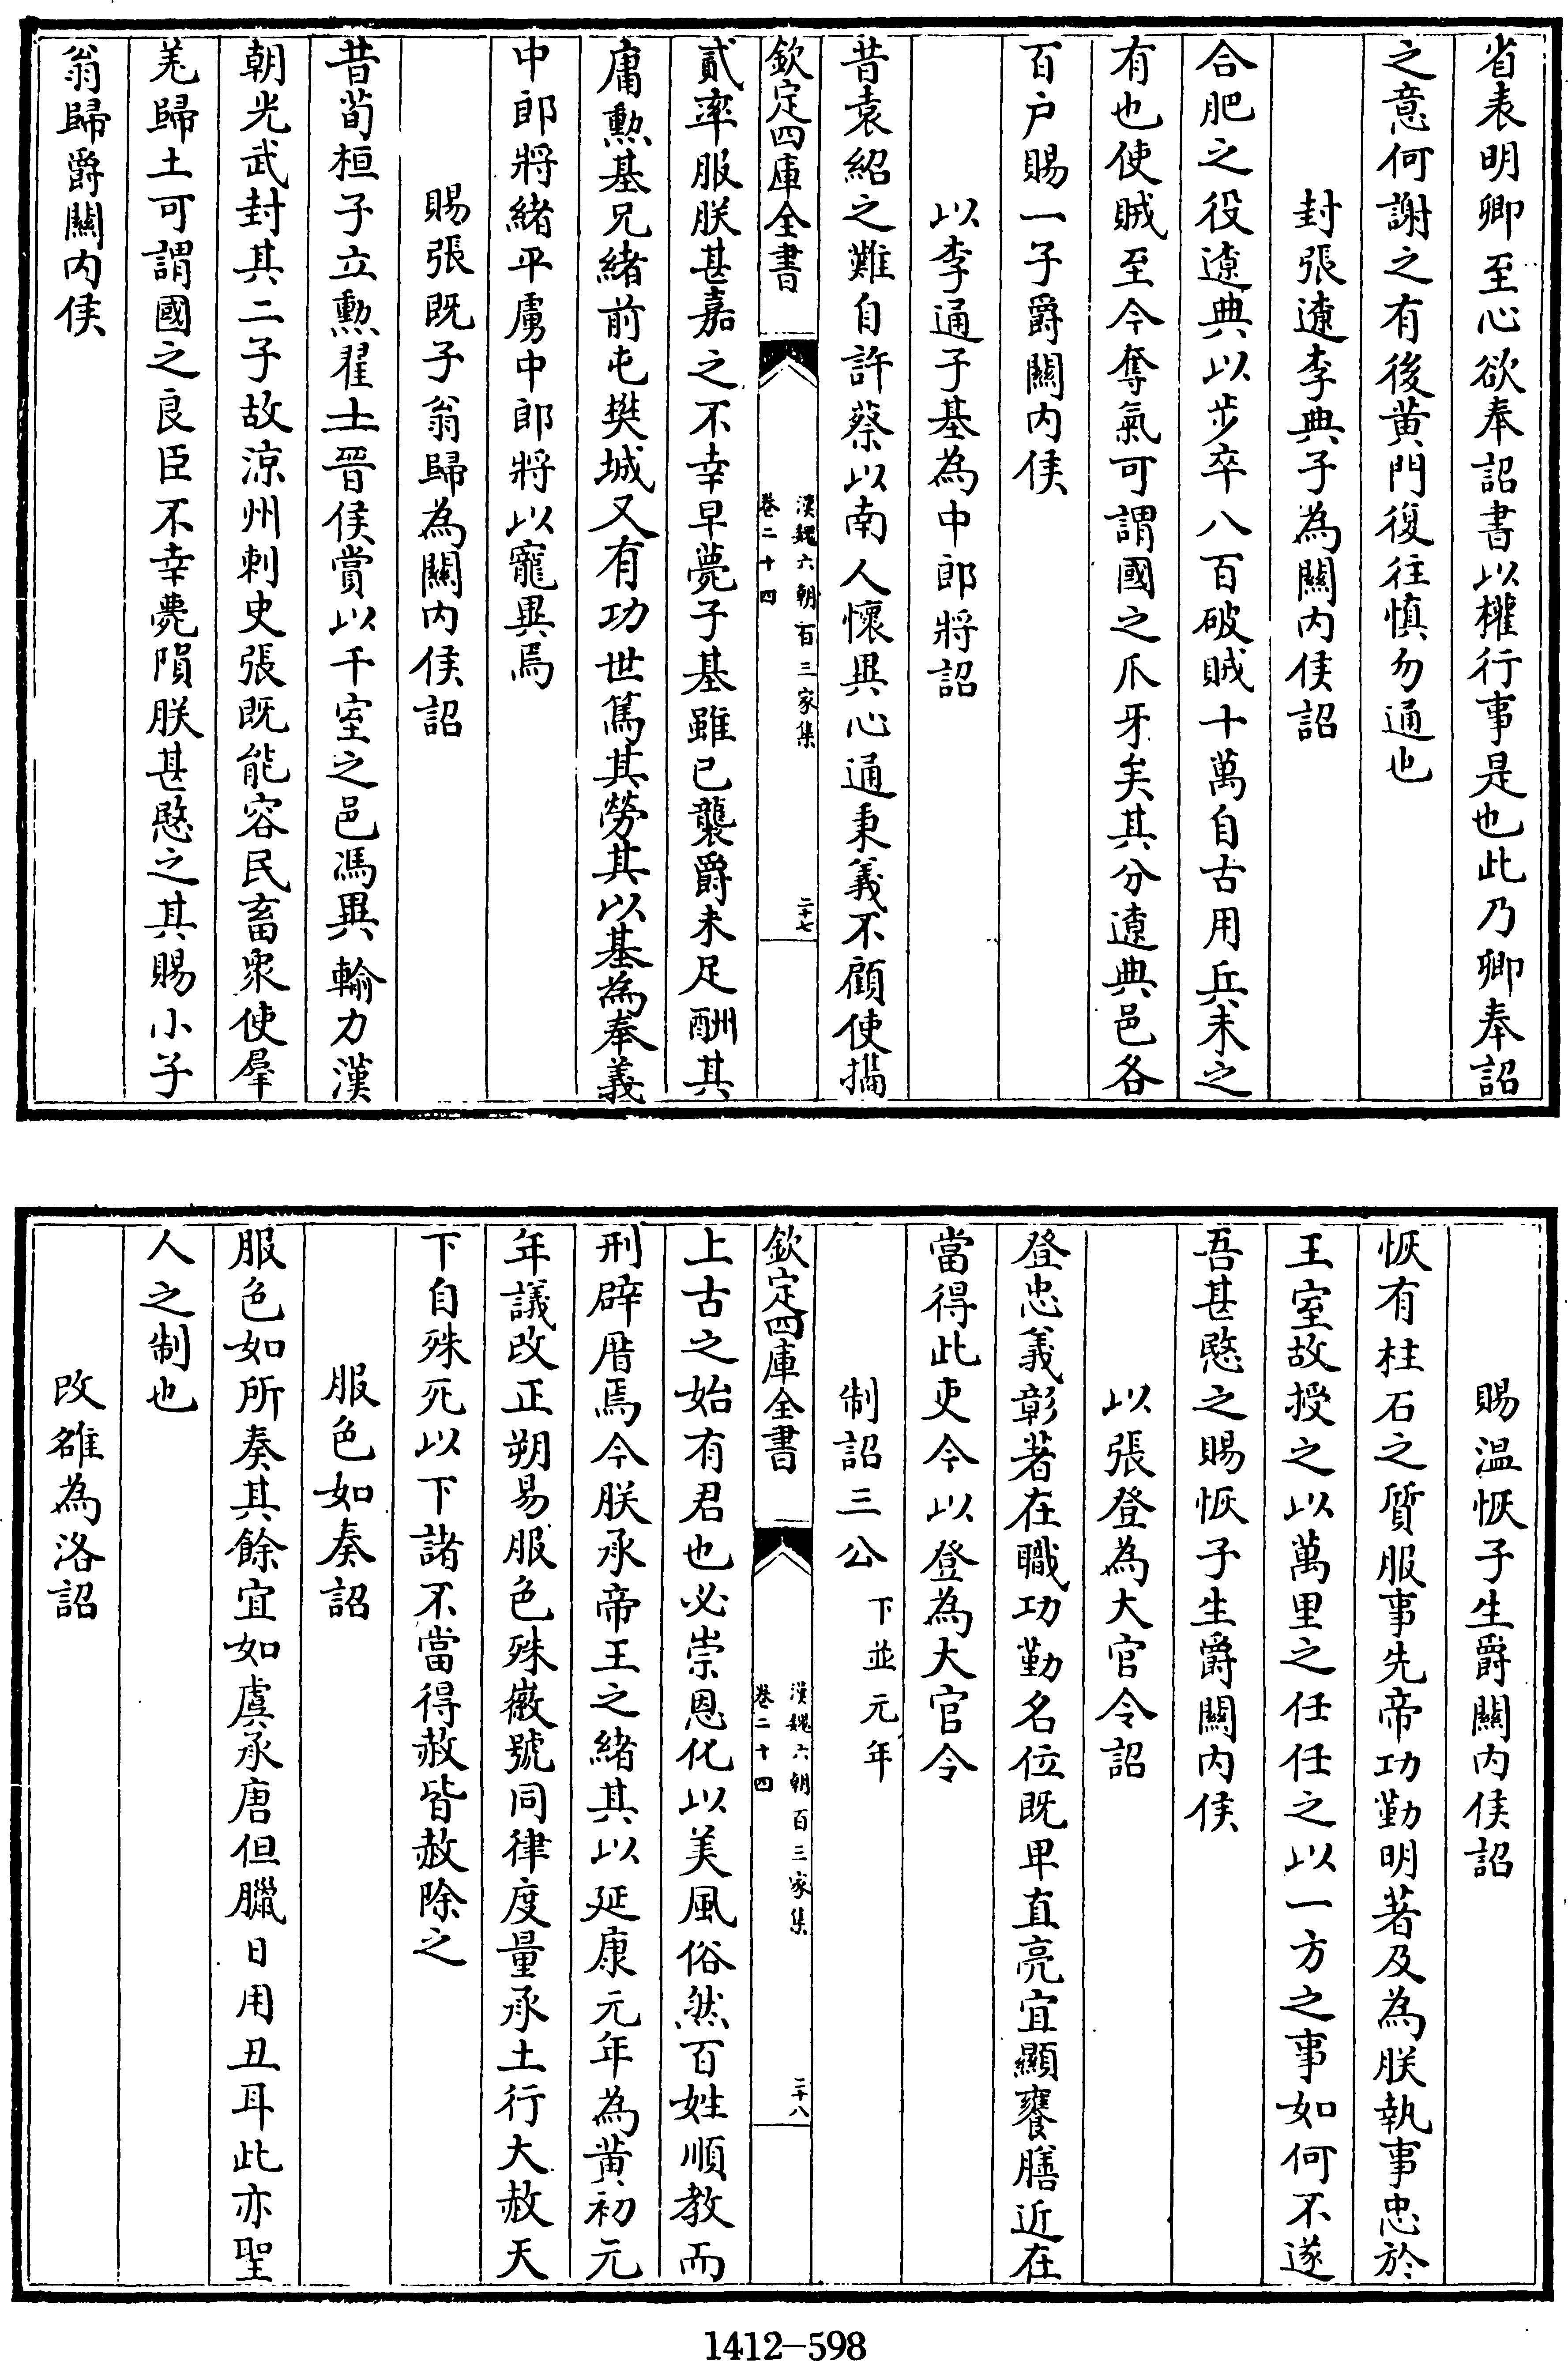 省表明卿至心欲奉詔書以權行事是也此乃卿奉詔
之意何謝之有後黄門復往慎勿通也
封張遼李典子為關内侯詔
合肥之役遼典以步卒八百破賊十萬自古用兵未之
有也使賊至今奪氣可謂國之爪牙矣其分遼典邑各
百户賜一子爵關内侯
以李通子基為中郎將詔
昔袁紹之難自許蔡以南人懷異心通秉義不顧使攜
欽定四庫全書
漢魏六朝百三家集
卷二十四
二十七
貳率服朕甚嘉之不幸早薨子基雖已襲爵未足酬其
庸勲基兄緒前屯樊城又有功世篤其勞其以基為奉義
中郎將緒平虜中郎將以寵異焉
賜張既子翁歸為關内侯詔
昔荀桓子立勲翟土晉侯賞以千室之邑馮異輸力漢
朝光武封其二子故涼州刺史張既能容民畜衆使羣
羌歸土可謂國之良臣不幸薨隕朕甚愍之其賜小子
翁歸爵關内侯
賜温恢子生爵關内侯詔
恢有柱石之質服事先帝功勤明著及為朕執事忠於
王室故授之以萬里之任任之以一方之事如何不遂
吾甚愍之賜恢子生爵關内侯
以張登為大官令詔
登忠義彰著在職功勤名位既卑直亮宜顯饔膳近在
當得此吏今以登為大官令
制詔三公下並元年
欽定四庫全書
漢魏六朝百三家集
卷二十四
二十八
上古之始有君也必崇恩化以美風俗然百姓順教而
刑辟厝焉今朕承帝王之緒其以延康元年為黄初元
年議改正朔易服色殊徽號同律度量承土行大赦天
下自殊死以下諸不當得赦皆赦除之
服色如奏詔
服色如所奏其餘宜如虞承唐但臘日用丑耳此亦聖
人之制也
改雒為洛詔
1412-598